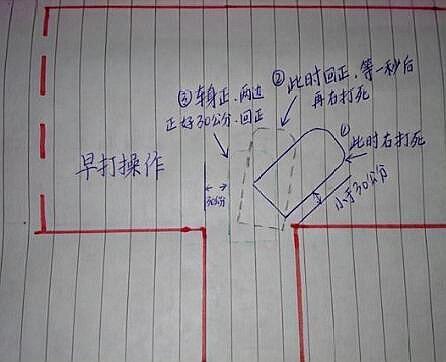 ③车身正.两边
正好30公分.回正
②此时回正.等一秒后
再右打死
①此时右打死
早打操作
30公分
小于30公分